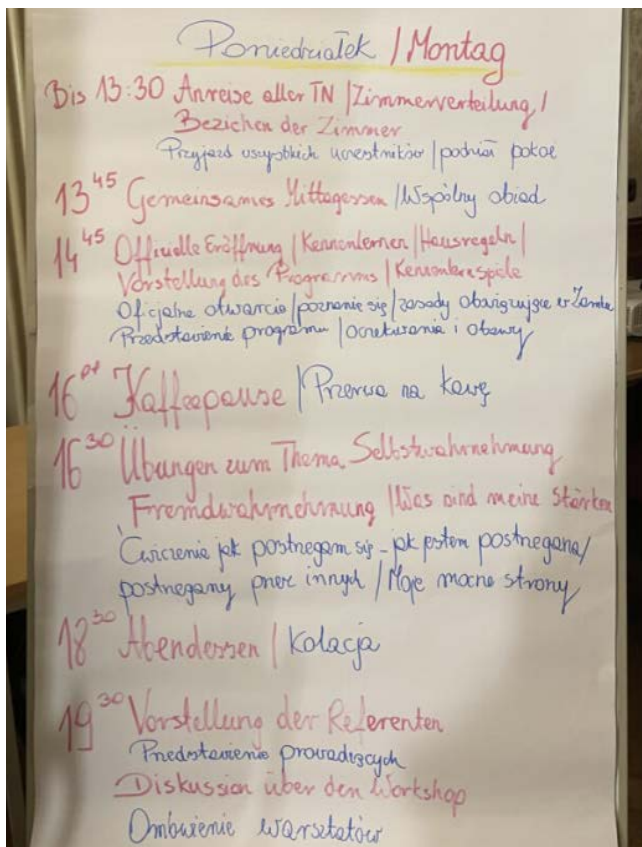 Poniedziałek / Montag
Bis 13:30 Anreise aller TN | Zimmerverteilung /
Beziehen der Zimmer
Przyjazd wszystkich uczestników / podział pokoi
13 45 Gemeinsames Mittagessen / Wspólny obiad
14 45 Officielle Eröffnung | Kennenlernen | Hausregeln |
Vorstellung des Programms | Kennenlernspiele
Oficjalne otwarcie / poznanie się / zasady obowiązujące w Zamku
Przedstawienie programu / oczekiwania i obawy
16 Kaffeepause | Przerwa na kawę
16 30 Übungen zum Thema Selbstwahrnehmung
Fremdwahrnehmung | Was sind meine Stärken
Ćwiczenia jak postrzegam się - jak jestem postrzegana /
postrzegany przez innych / Moje mocne strony
18 30 Abendessen | Kolacja
19 30 Vorstellung der Referenten
Przedstawienie prowadzących
Diskussion über den Workshop
Omówienie warsztatów